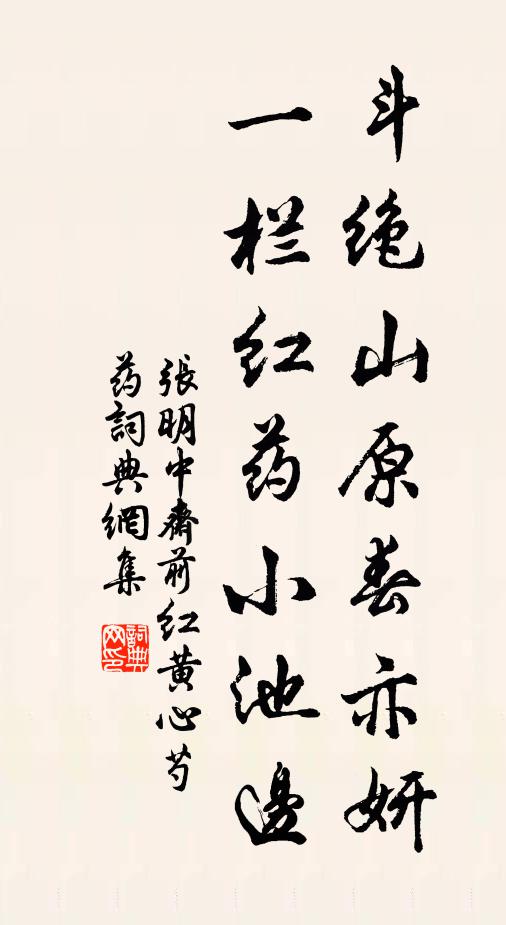 斗绝山原春亦妍
一栏红药小池邊
張明中齋前红黄心芍
药詞典網集
詞典
网印